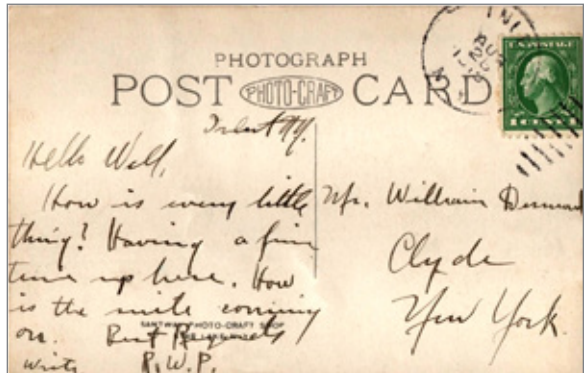 PHOTOGRAPH
POST PHOTO-CRAFT CARD
U.S. POSTAGE
1 CENT 1
INL
AUG
Hello Will,
How is every little
thing? Having a fine
time up here. How
is the mite coming
on. Best Regards
write R.W.P.
PHOTO-CRAFT SHOP
Mr. William
Clyde
New York.